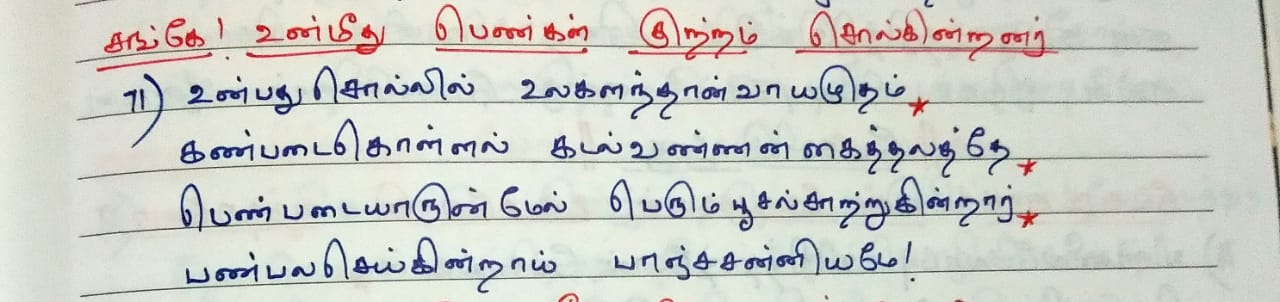 சங்கே! உன்மீது பெண்கள் குற்றம் சொல்கின்றனர்
71) உண்பது சொல்லில் உலகளந்தான் வாயமுதம்★
கண்படை கொள்ளல் கடல்வண்ணன் கைத்தலத்தே★
பெண்படையாருன் மேல் பெரும்பூசல் சாற்றுகின்றார்★
பண்பல செய்கின்றாய் பாஞ்சசன்னியமே!